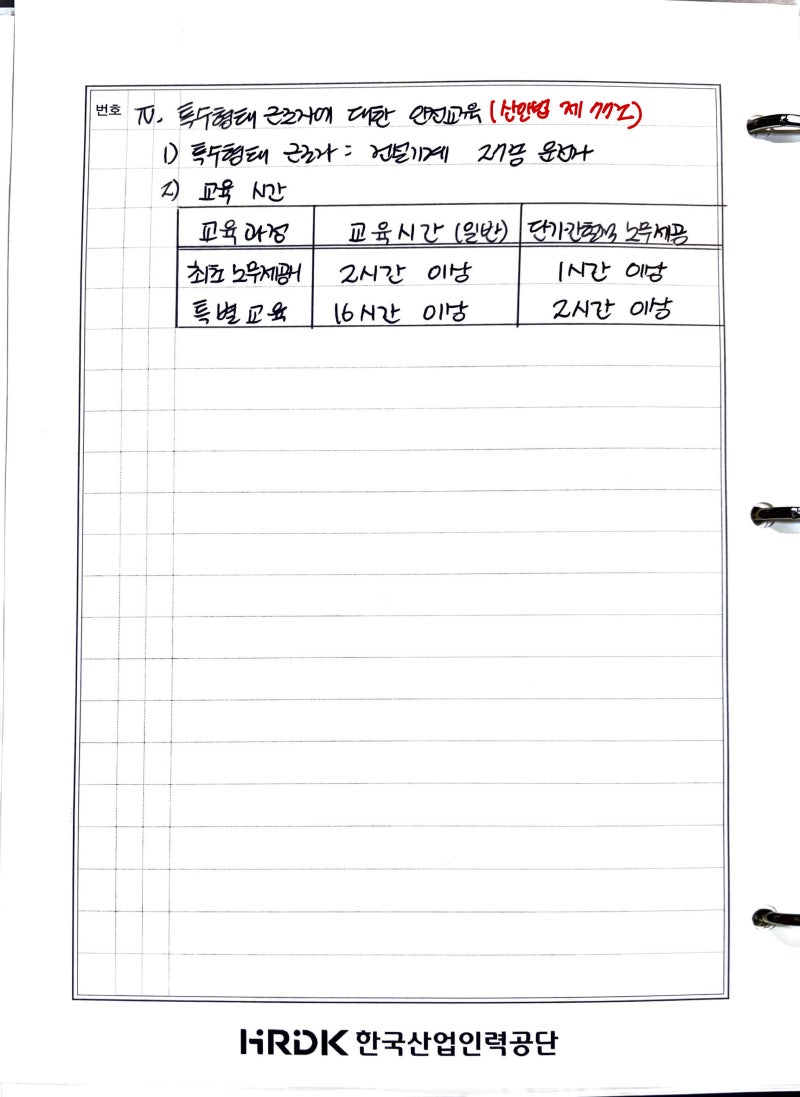 번호
Ⅳ. 특수형태 근로자에 대한 안전교육 (산안법 제77조)
1) 특수형태 근로자 : 건설기계 27종 운전자
2) 교육 시간
교육과정 교육시간 (일반) 단기간·간헐적 노무제공
최초 노무제공시 2시간 이상 1시간 이상
특별교육 16시간 이상 2시간 이상
HRDK 한국산업인력공단